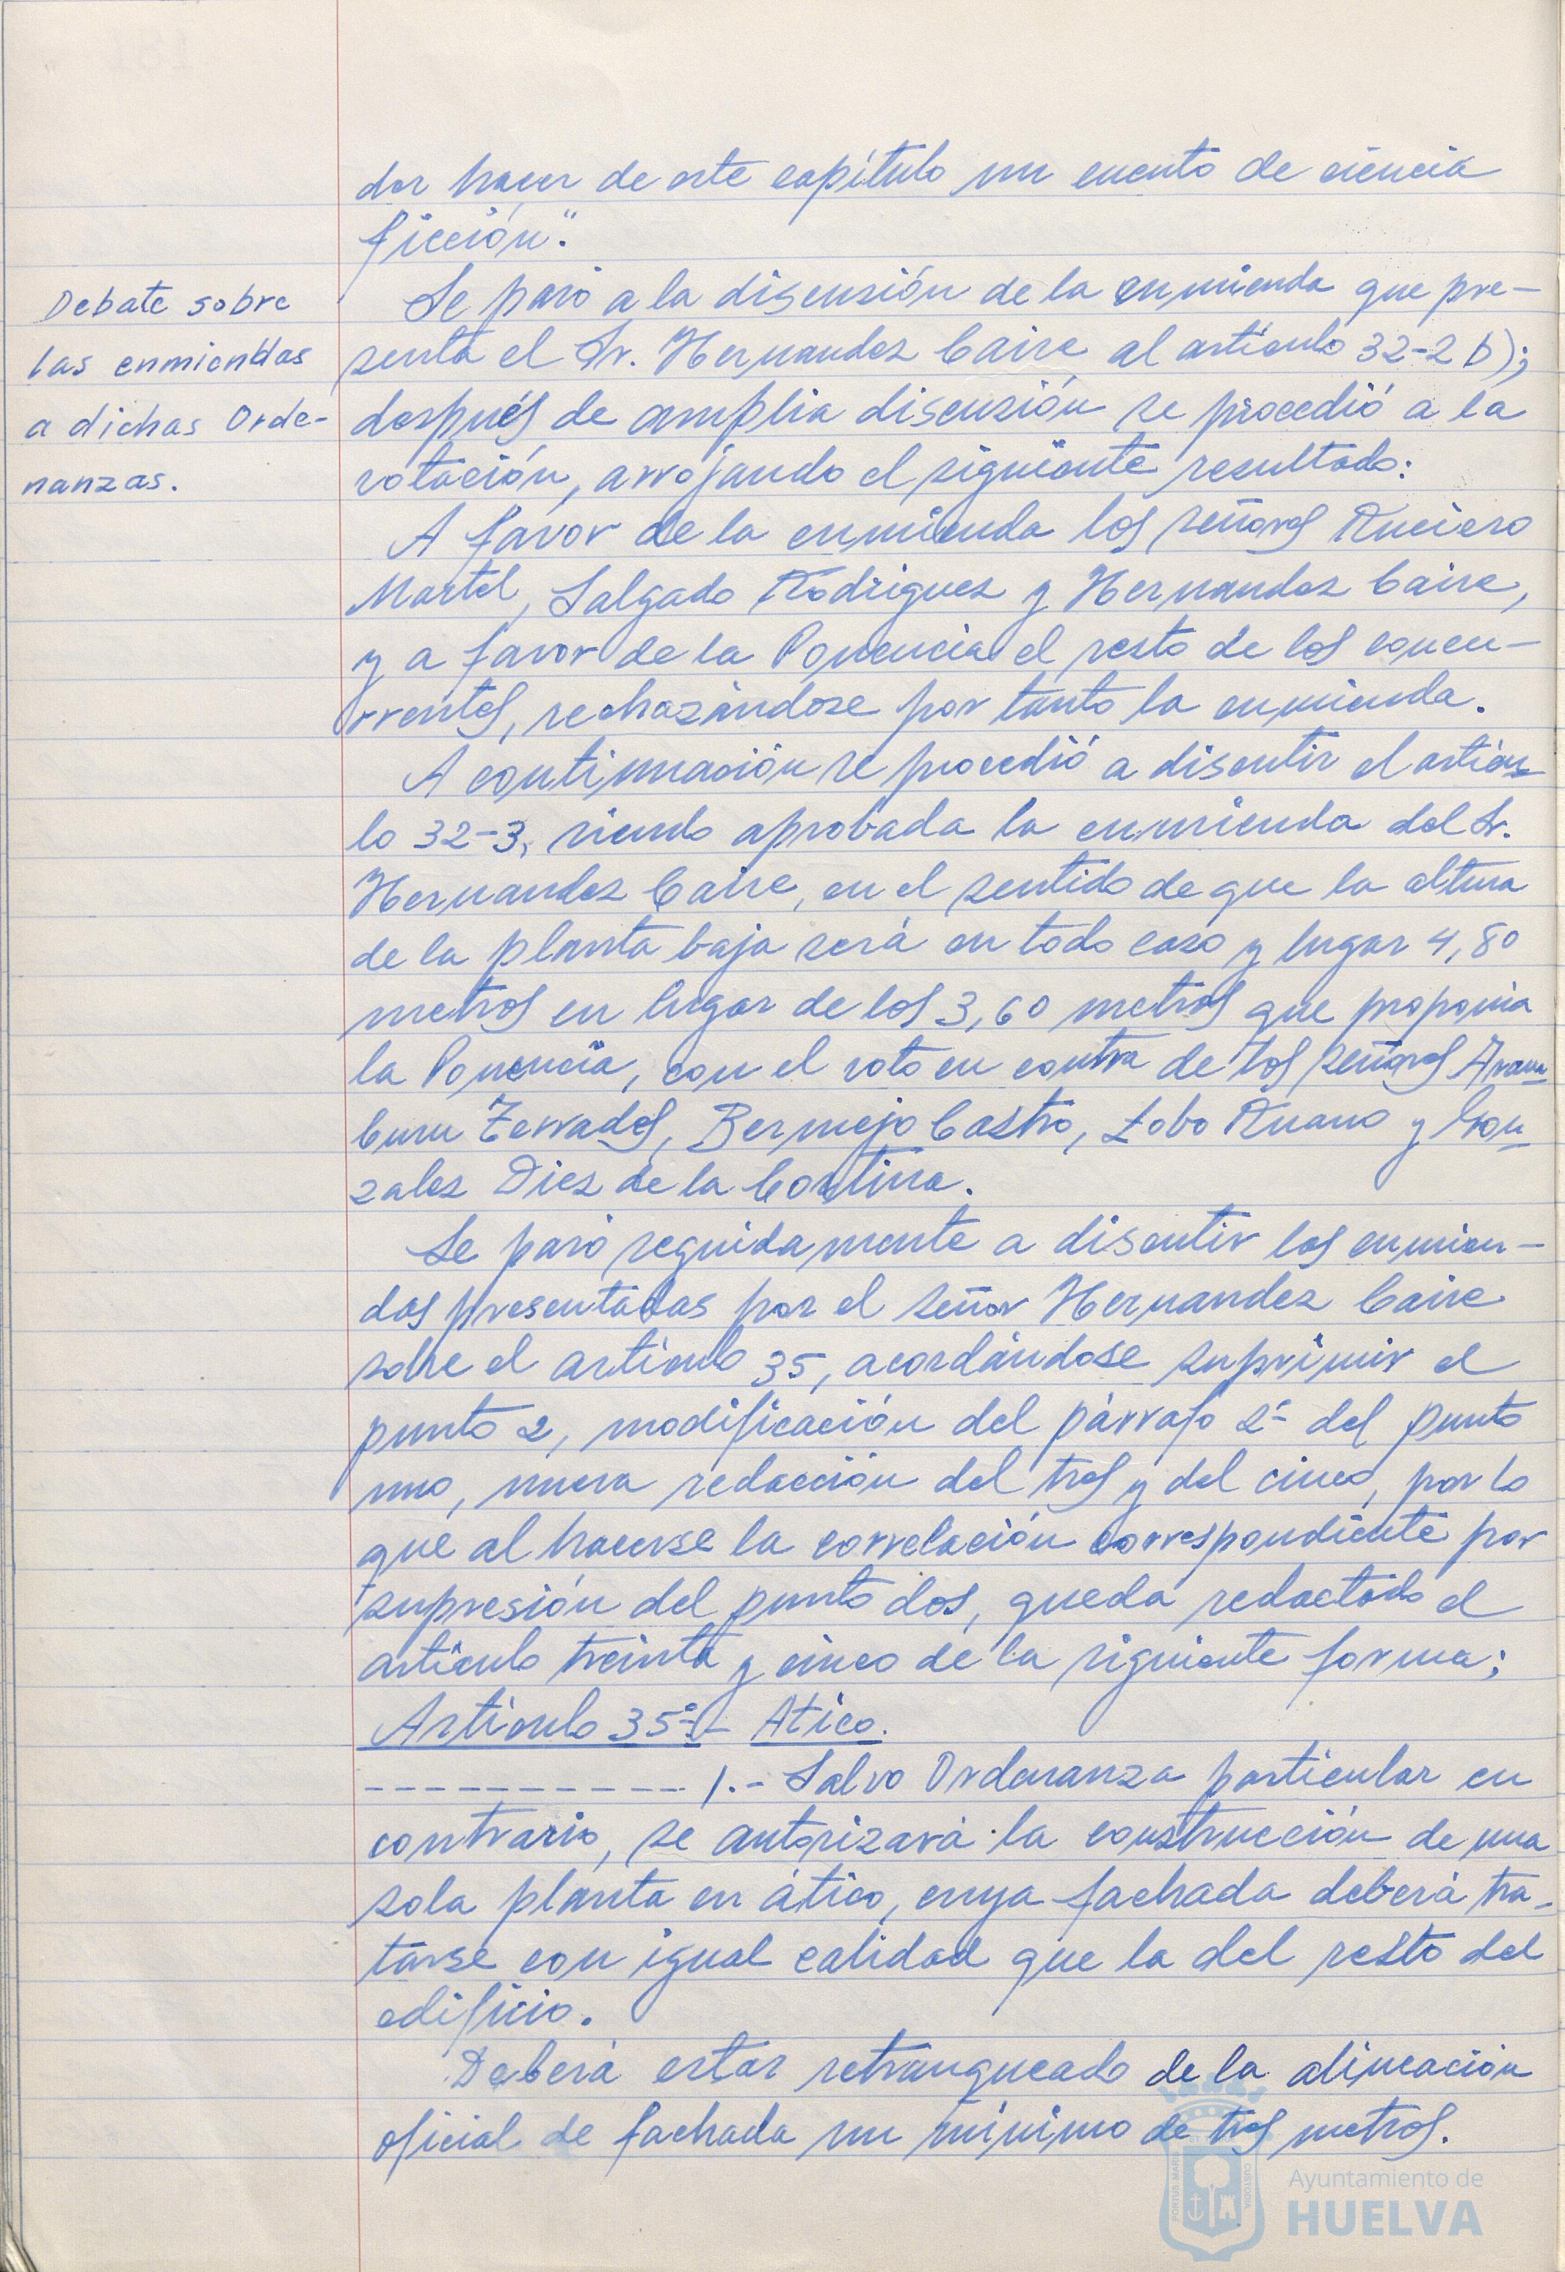 dor hacer de este capítulo un cuento de ciencia
ficción".
Debate sobre
las enmiendas
a dichas Orde-
nanzas.
Se pasó a la discusión de la enmienda que pre-
senta el Sr. Hernandez Caire al artículo 32-2 b);
después de amplia discusión se procedió a la
votación, arrojando el siguiente resultado:
A favor de la enmienda los señores Ruciero
Martel, Salgado Rodriguez y Hernandez Caire,
y a favor de la Ponencia el resto de los concu-
rrentes, rechazándose por tanto la enmienda.
A continuación se procedió a discutir el artícu-
lo 32-3, siendo aprobada la enmienda del Sr.
Hernandez Caire, en el sentido de que la altura
de la planta baja será en todo caso y lugar 4,80
metros en lugar de los 3,60 metros que proponia
la Ponencia, con el voto en contra de los señores Aram-
buru Terrades, Bermejo Castro, Lobo Ruano y Gon-
zalez Diez de la Cortina.
Se pasó seguidamente a discutir las enmien-
das presentadas por el señor Hernandez Caire
sobre el artículo 35, acordándose suprimir el
punto 2, modificación del párrafo 2º del punto
uno, nueva redacción del tres y del cinco, por lo
que al hacerse la correlación correspondiente por
supresión del punto dos, queda redactado el
artículo treinta y cinco de la siguiente forma;
Artículo 35º.- Atico.
----------- 1.- Salvo Ordenanza particular en
contrario, se autorizará la construcción de una
sola planta en ático, cuya fachada deberá tra-
tarse con igual calidad que la del resto del
edificio.
Deberá estar retranqueado de la alineación
oficial de fachada un mínimo de tres metros.
Ayuntamiento de
HUELVA